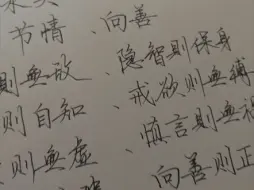 节情、向善
则无敌、隐智则保身
则自知、戒欲则无缚
则无虚、慎言则无祸
向善则正